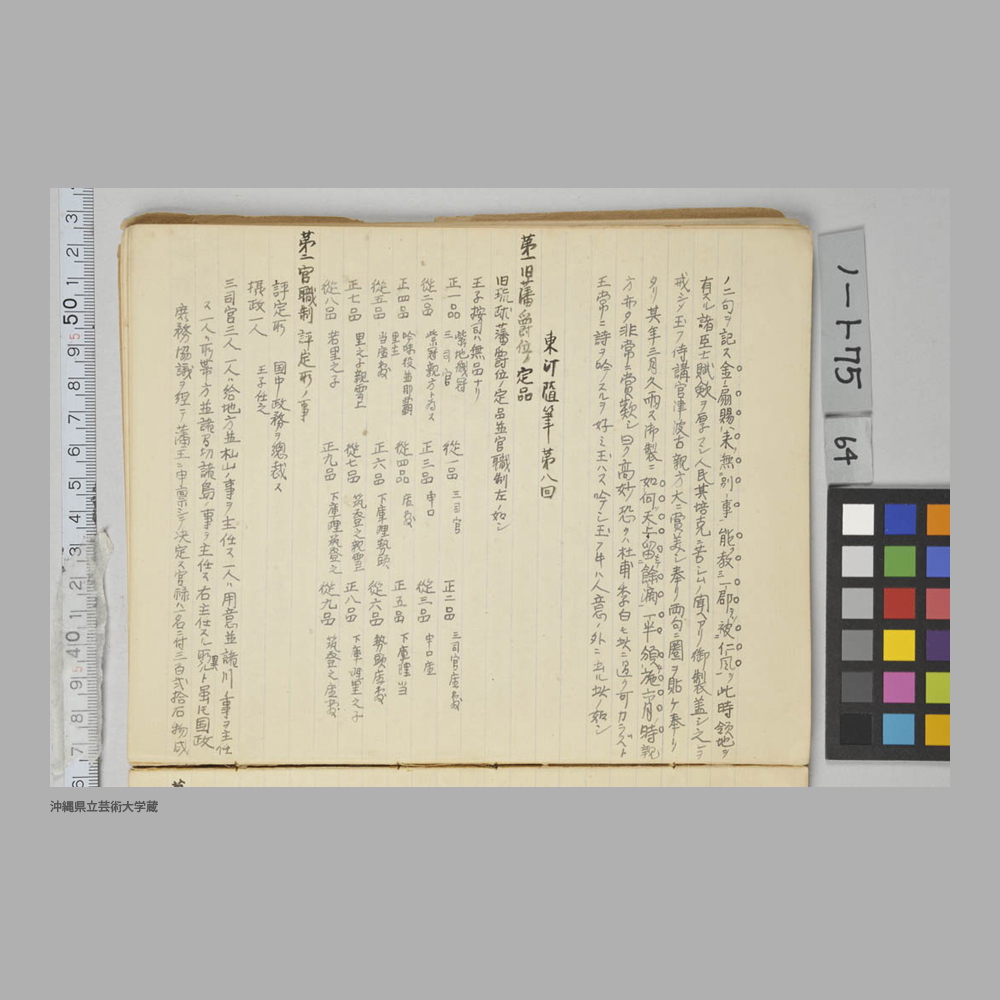 ノ二句ヲ記ス金扇賜来無別事能教三郡被仁風ヲ此時領地ヲ
有スル諸臣士賦斂ヲ厚クシ人民其掊克ニ苦シムノ聞ヘアリ御製蓋シ之ヲ
戒シメ玉フ侍講官津波古親方大ニ賞美シ奉リ両句ニ圏ヲ貼ケ奉リ
タリ其年三月久雨ス御製ニ如何天上留餘滴一半頒施六月時ノ
方亦タ非常ニ賞歎シ曰ク高妙恐クハ杜甫李白モ此ニ過ク可カラスト
王常ニ詩ヲ吟スルヲ好ミ玉ハス吟シ玉フ牛ハ人意ノ外ニ出ル此ノ如シ
東汀随筆 第八回
第一旧藩爵位ノ定品
旧琉球藩爵位ノ定品並官職制左ノ如シ
王子按司ハ無品ナリ
正一品 紫地織冠 三司官 従一品 三司官 正二品 三司官座敷
従二品 紫冠親方トカス 正三品 申口 従三品 申口座
正四品 吟味役並那覇里主 従四品 座敷 正五品 下庫理当
従五品 当座敷 正六品 下庫理勢頭 従六品 勢頭座敷
正七品 里之子親雲上 従七品 筑登之親雲上 正八品 下庫理里之子
従八品 若里之子 正九品 下庫理筑登之 従九品 筑登之座敷
第二官職制 評定所ノ事
評定所 国中政務ヲ總裁ス
摂政一人 王子任之
三司官三人 一人ハ給地方並杣山ノ事ヲ主任ス一人ハ用意並諸川ノ事ヲ主任
ス一人ハ所帯方並諸間切諸島ノ事ヲ主任ス右主任スル所異ルト雖モ国政
庶務協議ヲ経テ藩王ニ申禀シテ決定ス官禄ハ一名ニ付三百弐拾石物成
ノート75
64
沖縄県立芸術大学蔵